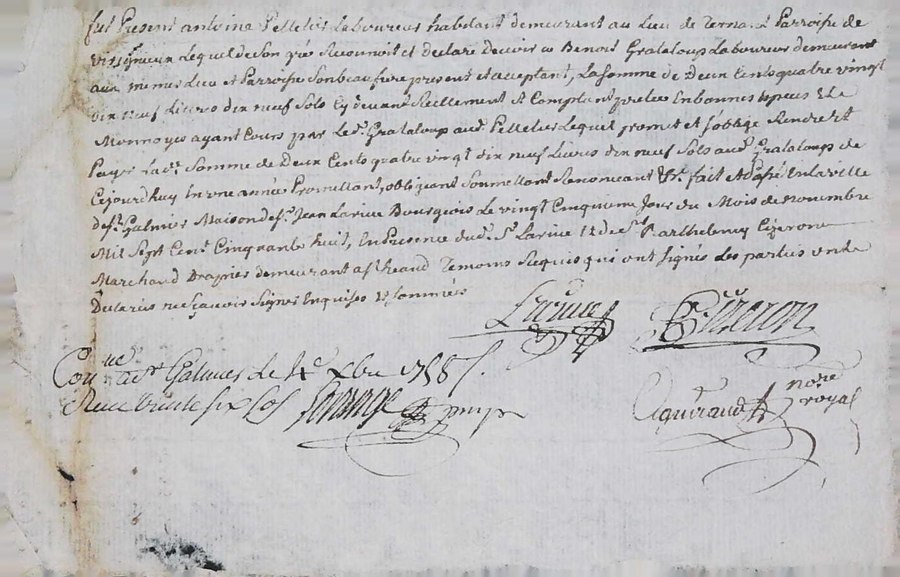 fut Present antoine Pelletier Laboureur habitant demeurant au Lieu de Ternant Parroisse de
Lequel de Son gré Reconnoit et declare Devoir a Benoit Grataloup Laboureur demeurant
aux memes Lieu et Parroisse Son beau frere present et acceptant, La somme de Deux Cents quatre vingt
dix neuf Livres dix neuf Sols Cy devant Reellement et Comptant pretée En bonnes Especes Et de
Monnoye ayant Cours par Led. Grataloup aud. Pelletier Lequel promet et s'oblige Rendre et
Payer Lad. Somme de Deux Cents quatre vingt dix neuf Livres dix neuf Sols aud. Grataloup de
Cejourdhuy En une année Promettant, obligeant Soumettant Renonceant &c. fait et Passé En la ville
de St. Galmier Maison de Sr. Jean Larive Bourgeois Le vingt Cinquieme Jour du Mois de Novembre
Mil Sept Cent Cinquante huit, En Presence dud. Sr. Larive et de Sr. Barthelemy Cizeron
Marchand Drapier demeurant a St. heand Temoins Requis qui ont signés Les parties ont
Declarés ne sçavoir Signer Enquises et Sommées
Larive Cizeron
Con.lle a St. Galmier Le 4e Xbre 1758
Receu trente six sols
nore royal